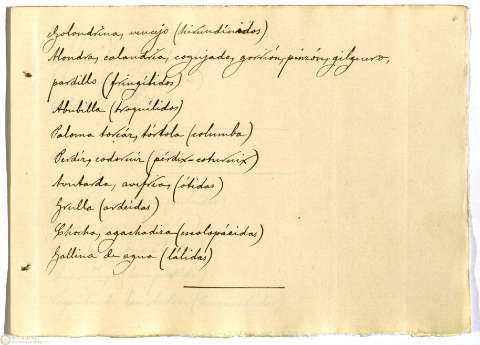 Golondrina, vencejo (hirundínidos)
Alondra, calandria, cogujada, gorrión, pinzón, gilguero,
pardillo (fringílidos)
Abubilla (troquílidos)
Paloma torcáz, tórtola (columba)
Perdiz, codorniz (pérdix-coturnix)
Avutarda, avefría, (ótidas)
Grulla (ardeidas)
Chocha, agachadiza (escolopácidas)
Gallina de agua (lálidas)